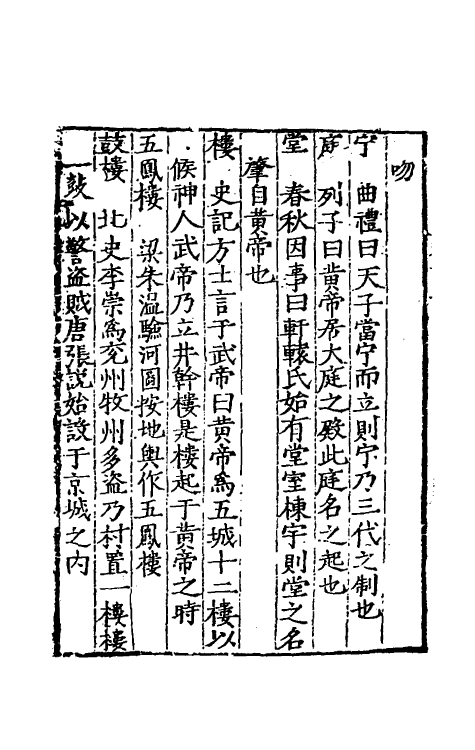 吻
宁　曲禮曰天子當宁而立則宁乃三代之制也
庭　列子曰黄帝居大庭之殿此庭名之起也
堂　春秋因事曰軒轅氏始有堂室棟宇則堂之名
肇自黄帝也
樓　史記方士言于武帝曰黄帝爲五城十二樓以
候神人武帝乃立井幹樓是樓起于黄帝之時
五鳳樓　梁朱温驗河圖按地輿作五鳳樓
鼓樓　北史李崇爲兖州牧州多盗乃村置一樓樓
一鼓以警盗賊唐張說始設于京城之内